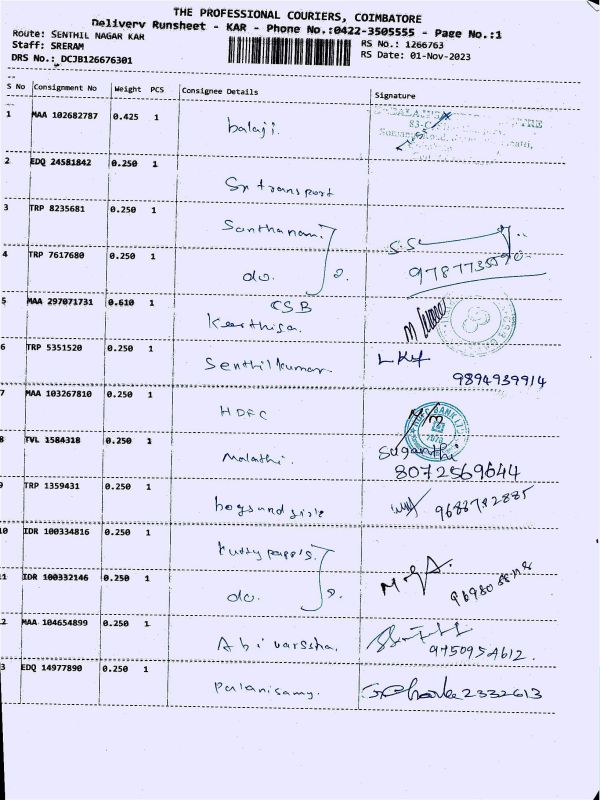 THE PROFESSIONAL COURIERS, COIMBATORE
Delivery Runsheet - KAR - Phone No.:0422-3505555 - Page No.:1
Route: SENTHIL NAGAR KAR
RS No.: 1266763
Staff: SRERAM
RS Date: 01-Nov-2023
DRS No.: DCJB126676301
S No Consignment No Weight PCS Consignee Details Signature
1 MAA 102682787 0.425 1 balaji.
2 EDQ 24581842 0.250 1 Sri transport
3 TRP 8235681 0.250 1 Santhanam
4 TRP 7617680 0.250 1 do. 2.
5 MAA 297071731 0.610 1 CSB
Keerthisa.
6 TRP 5351520 0.250 1 Senthilkumar. 9894939914
7 MAA 103267810 0.250 1 HDFC
8 TVL 1584318 0.250 1 Malathi. Suganthi
8072569644
9 TRP 1359431 0.250 1 boysundgirls
10 IDR 100334816 0.250 1 kuttypapp's.
11 IDR 100332146 0.250 1 do. 2.
2 MAA 104654899 0.250 1 Abi varssha. 9750954612.
3 EDQ 14977890 0.250 1 Palanisamy. 2332613